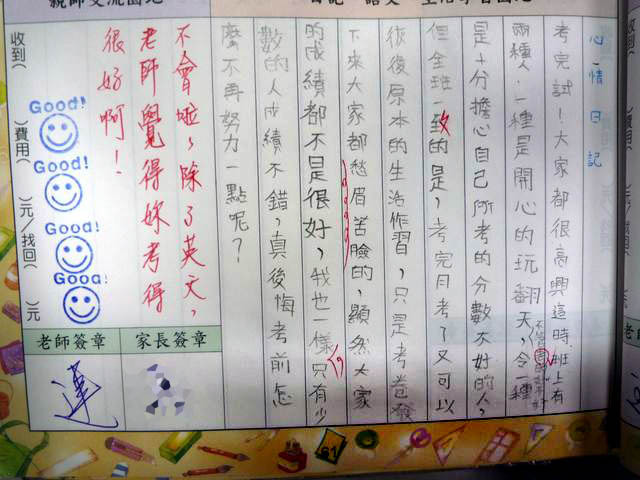 心情日記
考完試!大家都很高興這時,班上有
兩種人,一種是開心的玩翻天,令一種
是十分擔心自己所考的分數不好的人,
但全班一致的是,考完月考了又可以
恢後原本的生活作習,只是考卷發
下來大家都愁眉苦臉的,顯然大家
的成績都不是很好,我也一樣只有少
數的人成績不錯,真後悔考前怎
麼不再努力一點呢?
不會啦,除了英文,
老師覺得妳考得
很好啊!
Good!
Good!
Good!
Good!
收到(
)費用(
)元/找回(
)元
老師簽章
家長簽章
蓮